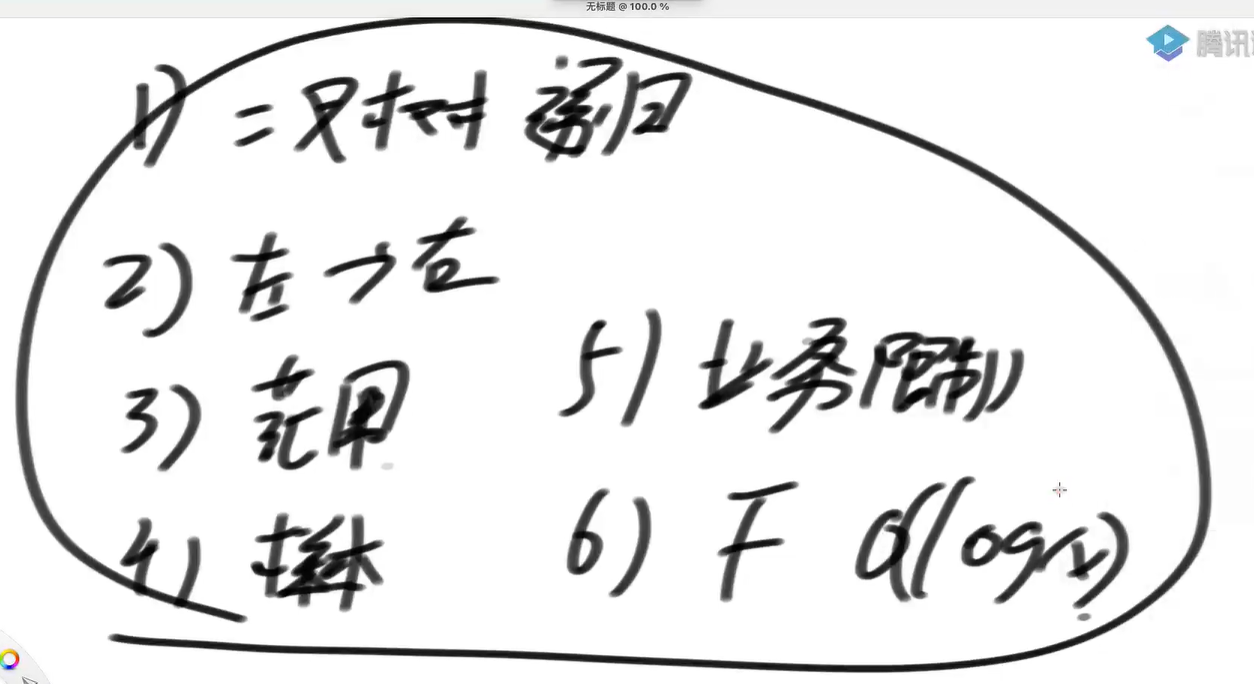 无标题 @ 100.0 %
腾讯
1) 二叉树 递归
2) 左→右
3) 范用
4) 模
5) 业务限制
6) F O(logn)